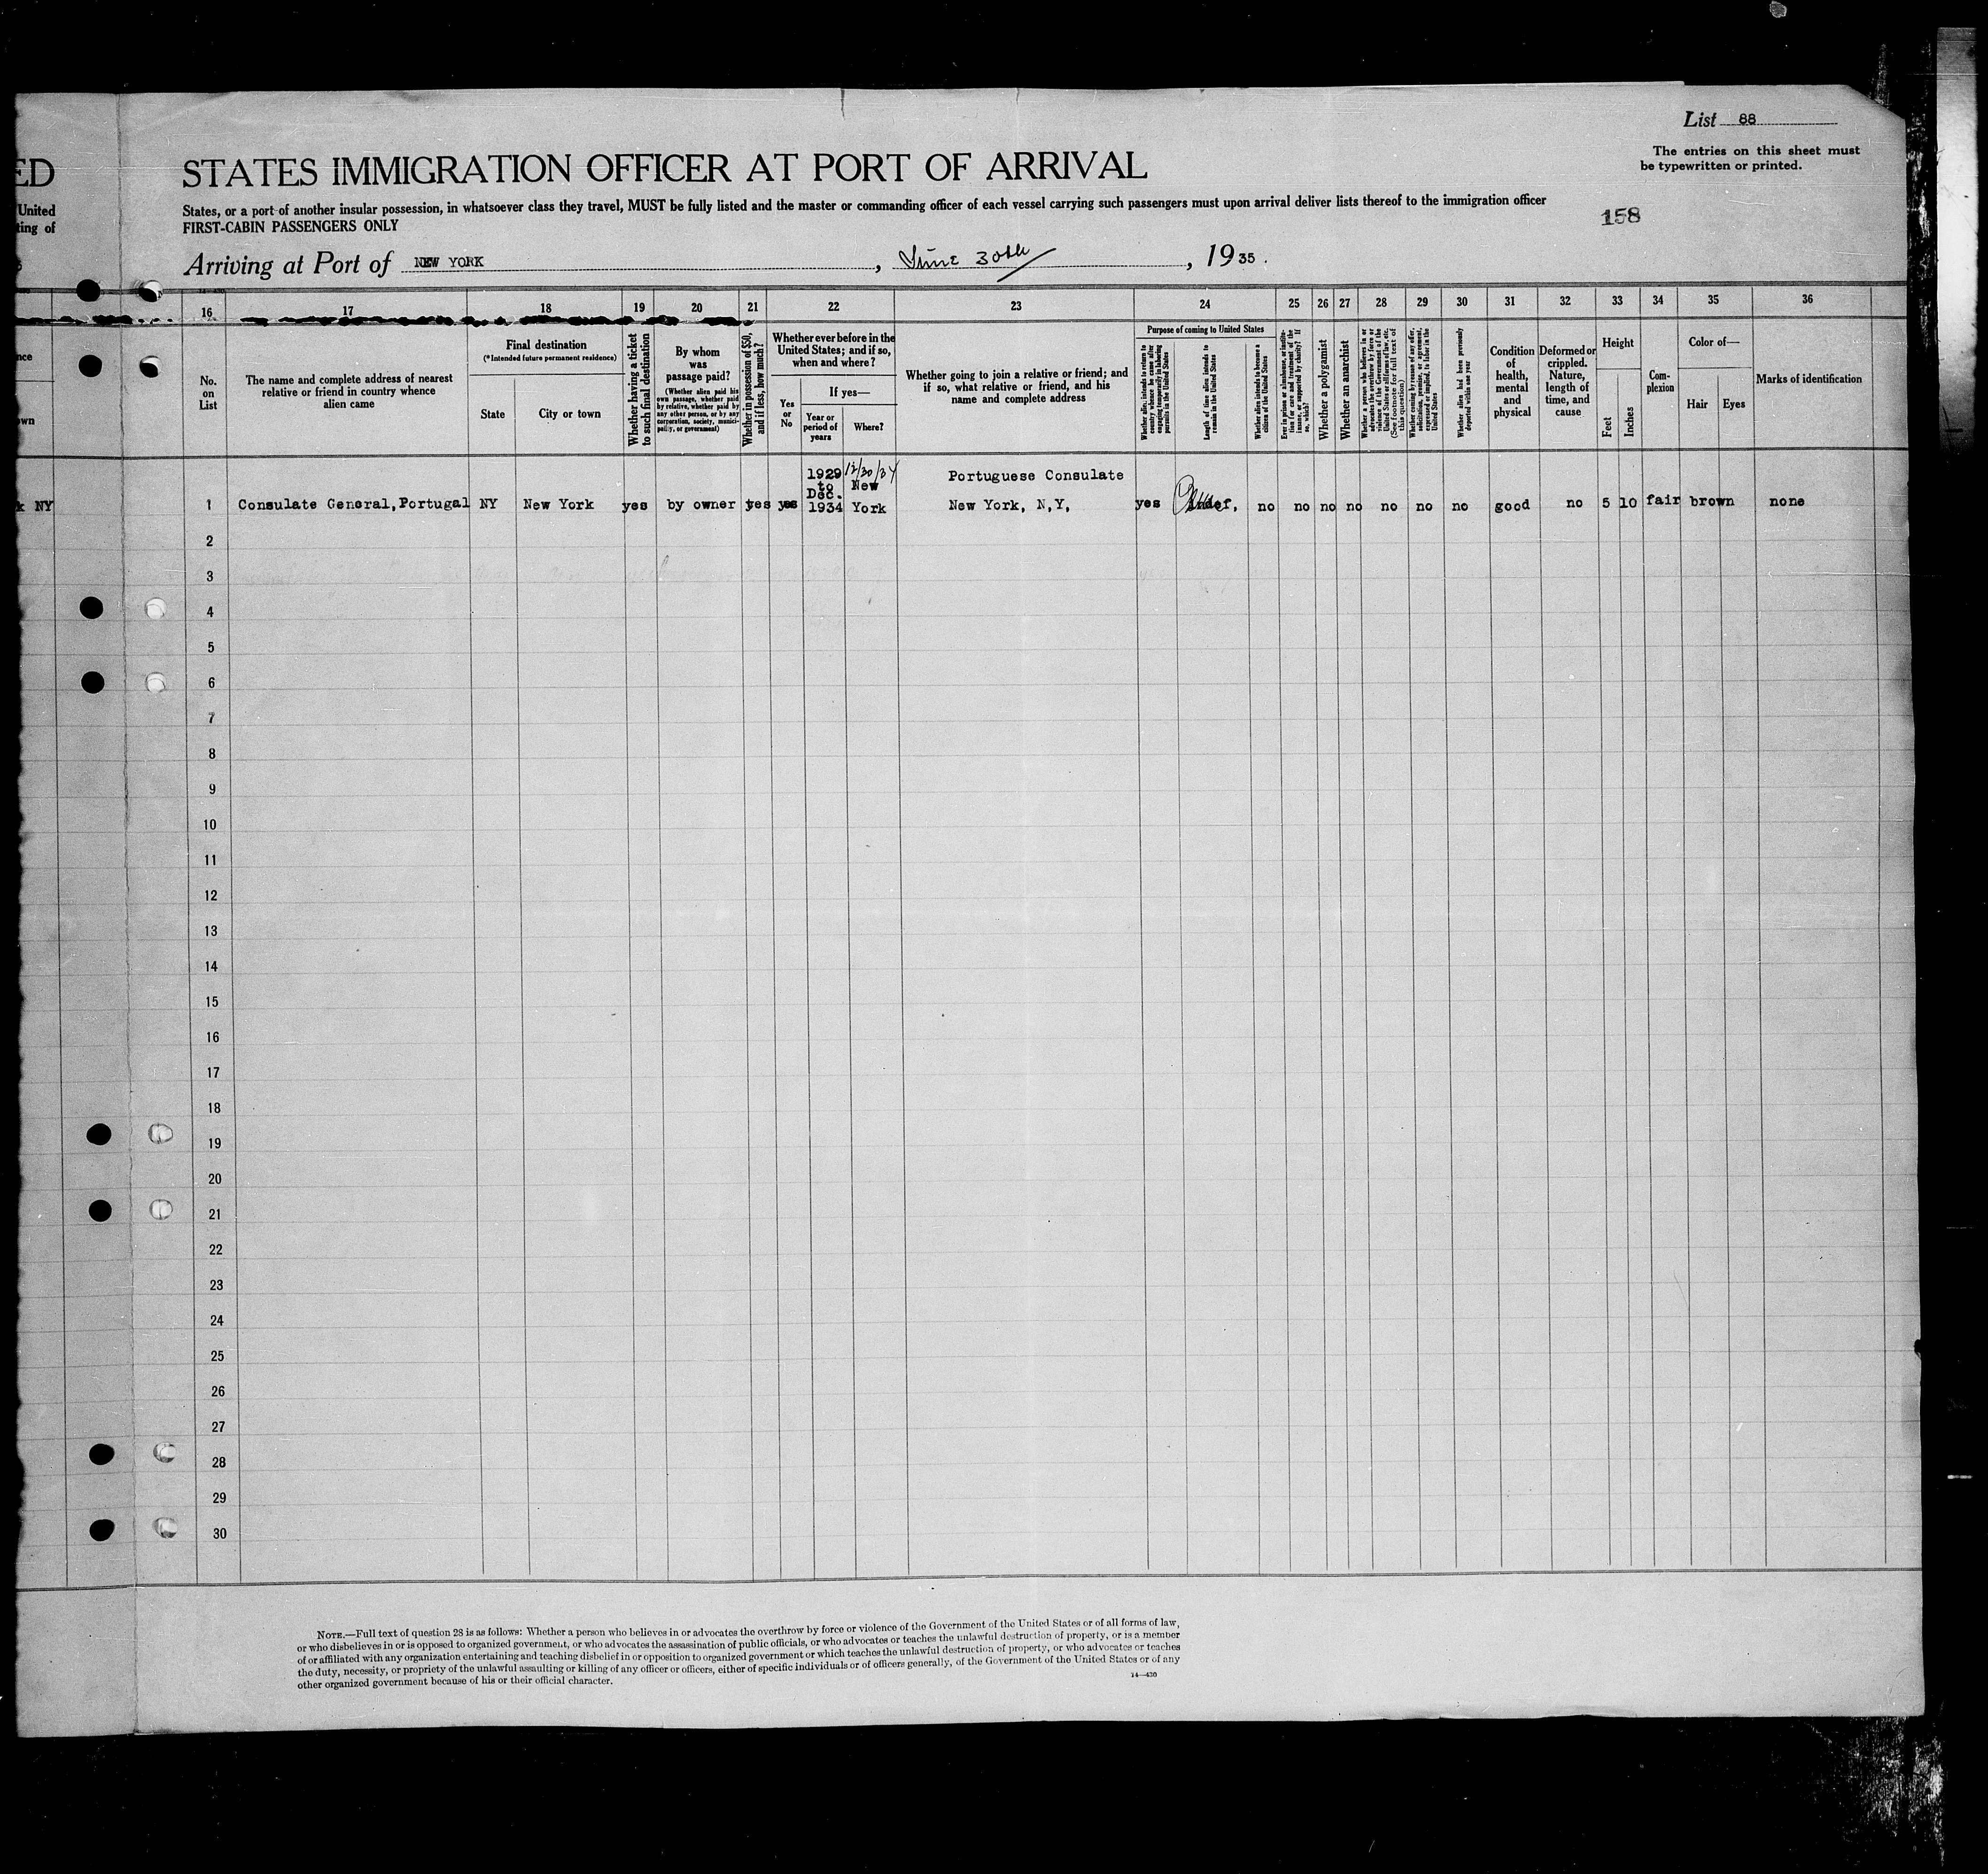 List 88
The entries on this sheet must
be typewritten or printed.
ED
STATES IMMIGRATION OFFICER AT PORT OF ARRIVAL
United
ting of
States, or a port of another insular possession, in whatsoever class they travel, MUST be fully listed and the master or commanding officer of each vessel carrying such passengers must upon arrival deliver lists thereof to the immigration officer
FIRST-CABIN PASSENGERS ONLY
158
Arriving at Port of NEW YORK, June 30th, 1935.
16 17 18 19 20 21 22 23 24 25 26 27 28 29 30 31 32 33 34 35 36
No.
on
List
The name and complete address of nearest
relative or friend in country whence
alien came
Final destination
(*Intended future permanent residence)
State
City or town
Whether having a ticket
to such final destination
By whom
was
passage paid?
(Whether alien paid his
own passage, whether paid
by relative, whether paid by
any other person, or by any
corporation, society, munici-
pality, or government)
Whether in possession of $50,
and if less, how much?
Whether ever before in the
United States; and if so,
when and where?
If yes—
Yes
or
No
Year or
period of
years
Where?
Whether going to join a relative or friend; and
if so, what relative or friend, and his
name and complete address
Purpose of coming to United States
Whether alien intends to return to
country whence he came after
engaging temporarily in laboring
pursuits in the United States
Length of time alien intends to
remain in the United States
Whether alien intends to become a
citizen of the United States
Ever in prison or almshouse, or institu-
tion for care and treatment of the
insane, or supported by charity? If
so, which?
Whether a polygamist
Whether an anarchist
Whether a person who believes in or
advocates the overthrow by force or
violence of the Government of the
United States or all forms of law, etc.
(See footnote for full text of
this question)
Whether coming by reason of any offer,
solicitation, promise, or agreement,
expressed or implied, to labor in the
United States
Whether alien had been previously
deported within one year
Condition
of
health,
mental
and
physical
Deformed or
crippled.
Nature,
length of
time, and
cause
Height
Feet
Inches
Com-
plexion
Color of—
Hair
Eyes
Marks of identification
nce
own
k NY
1 Consulate General, Portugal NY New York yes by owner yes yes 1929 to Dec. 1934 12/30/34 New York Portuguese Consulate New York, N,Y, yes no no no no no no no good no 5 10 fair brown none
2
3
4
5
6
7
8
9
10
11
12
13
14
15
16
17
18
19
20
21
22
23
24
25
26
27
28
29
30
NOTE.—Full text of question 28 is as follows: Whether a person who believes in or advocates the overthrow by force or violence of the Government of the United States or of all forms of law,
or who disbelieves in or is opposed to organized government, or who advocates the assassination of public officials, or who advocates or teaches the unlawful destruction of property, or is a member
of or affiliated with any organization entertaining and teaching disbelief in or opposition to organized government or which teaches the unlawful destruction of property, or who advocates or teaches
the duty, necessity, or propriety of the unlawful assaulting or killing of any officer or officers, either of specific individuals or of officers generally, of the Government of the United States or of any
other organized government because of his or their official character.
14—430